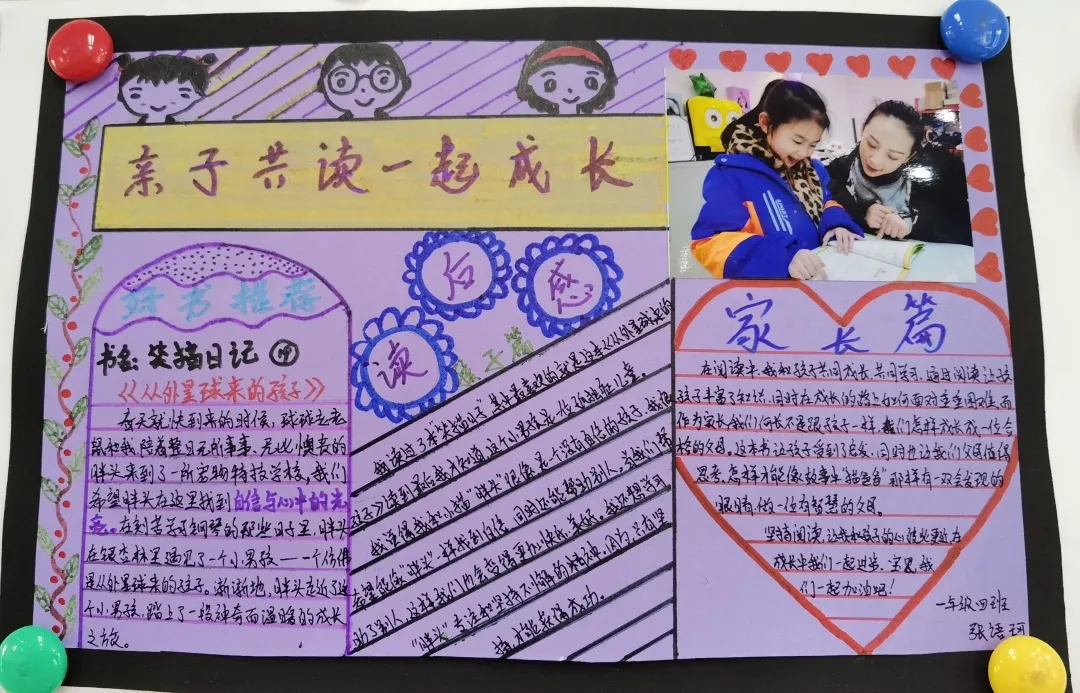 亲子共读一起成长
好书推荐
书名:笑猫日记⑲
《从外星球来的孩子》
春天就快到来的时候,球球老老
鼠和我,陪着整日无所事事、无比懊丧的
胖头来到了一所宠物特技学校。我们
希望胖头在这里找到自信与心中的光
亮。在刻苦学打钢琴的那些日子里,胖头
在银杏林里遇见了一个小男孩——一个仿佛
是从外星球来的孩子。渐渐地,胖头走近了这
个小男孩,踏上了一段神奇而温暖的成长
之旅。
读后感
孩子篇
我读过了本"笑猫日记"其中最喜欢的就是这本从外星球来的
孩子。读到最后我才知道这个小男孩是一位孤独症儿童。
我觉得我和小猫"胖头"很像是个没有自信的孩子,我很
希望能像"胖头"一样找到自信,同时还能帮助别人。当我们帮
助了别人,这样我们也会觉得更加快乐、美好。我还想学习
"胖头"专注和坚持不懈的精神,因为只有坚
持,才能获得成功。
家长篇
在阅读中,我和孩子共同成长,共同学习,通过阅读让孩
孩子丰富了知识,同时在成长的路上如何面对重重困难,而
作为家长,我们何尝不是跟孩子一样,我们怎样成长成一位合
格的父母。这本书让孩子受到启发,同时也让我们父母值得
思考,怎样才能像故事中"猫爸爸"那样有一双会发现的
眼睛,做一位有智慧的父母。
坚持阅读,让我和孩子的心彼此靠近,在
成长中我们一起进步。宝贝,我
们一起加油吧!
一年级四班
张语珂
SPORT